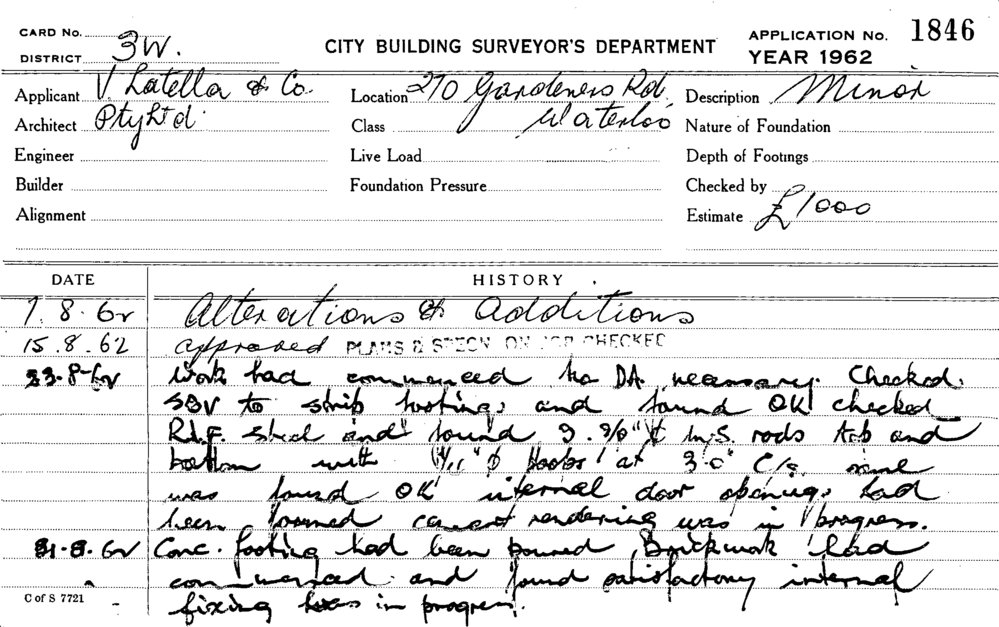 CARD No. 3W.
DISTRICT
CITY BUILDING SURVEYOR'S DEPARTMENT
APPLICATION No. 1846
YEAR 1962
Applicant V. Latella & Co.
Architect Pty Ltd.
Engineer
Builder
Alignment
Location 270 Gardeners Rd.
Class Waterloo
Live Load
Foundation Pressure
Description Minor
Nature of Foundation
Depth of Footings
Checked by
Estimate £1000
DATE HISTORY
7.8.62 Alterations & Additions
15.8.62 approved PLANS & SPECN ON JOB CHECKED
23.8.62 Work had commenced No DA. necessary. Checked.
to strip footings and found OK checked
steel and found 3. rods top and
bottom with at 3'0" C/s. same
was found OK internal door openings had
been formed cement rendering was in progress.
31.8.62 Conc. footing had been poured, Brickwork had
commenced and found satisfactory internal
fixing was in progress.
C of S 7721